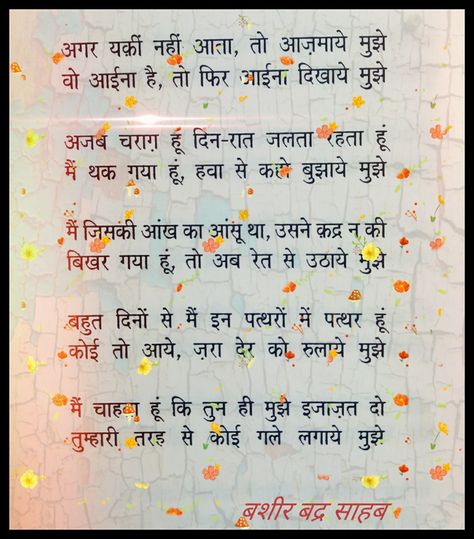 अगर यक़ीं नहीं आता, तो आज़माये मुझे
वो आईना है, तो फिर आईना दिखाये मुझे
अजब चराग़ हूं दिन-रात जलता रहता हूं
मैं थक गया हूं, हवा से कहो बुझाये मुझे
मैं जिमकी आंख का आंसू था, उसने क़द्र न की
बिखर गया हूं, तो अब रेत से उठाये मुझे
बहुत दिनों से मैं इन पत्थरों में पत्थर हूं
कोई तो आये, ज़रा देर को रुलाये मुझे
मैं चाहता हूं कि तुम ही मुझे इजाज़त दो
तुम्हारी तरह से कोई गले लगाये मुझे
बशीर बद्र साहब